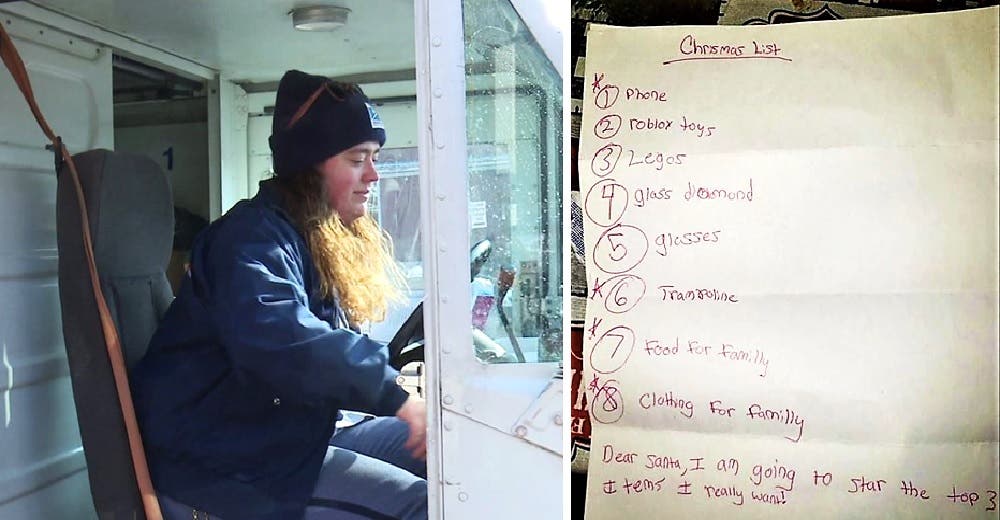 1
Chrismas List
* 1 Phone
2 roblox toys
3 Legos
4 glass diamond
5 glasses
* 6 Trampoline
* 7 Food For Familly
* 8 Clothing For Familly
Dear Santa, I am going to star the top 3
Items I really want!